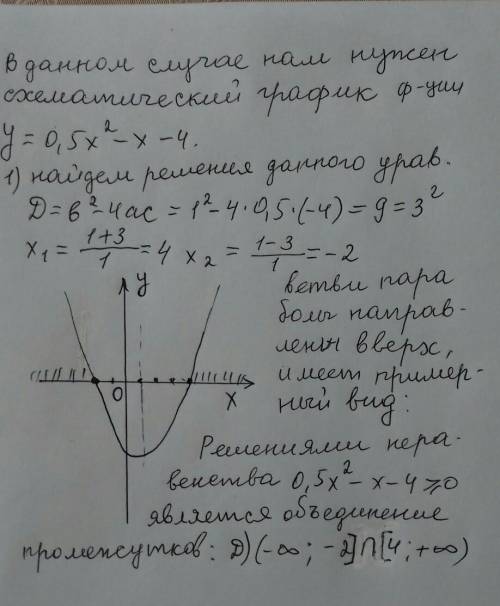 в данном случае нам нужен
схематический график ф-ции
y = 0,5x² - x - 4.
1) найдем решения данного урав.
Д = в² - 4ас = 1² - 4·0,5·(-4) = 9 = 3²
x₁ = (1+3)/1 = 4 x₂ = (1-3)/1 = -2
ветви пара
болы направ-
лены вверх,
имеет пример-
ный вид:
y
0
x
Решениями нера-
венства 0,5x² - x - 4 ⩾ 0
является объединение
промежутков: Д) (-∞; -2]∩[4; +∞)